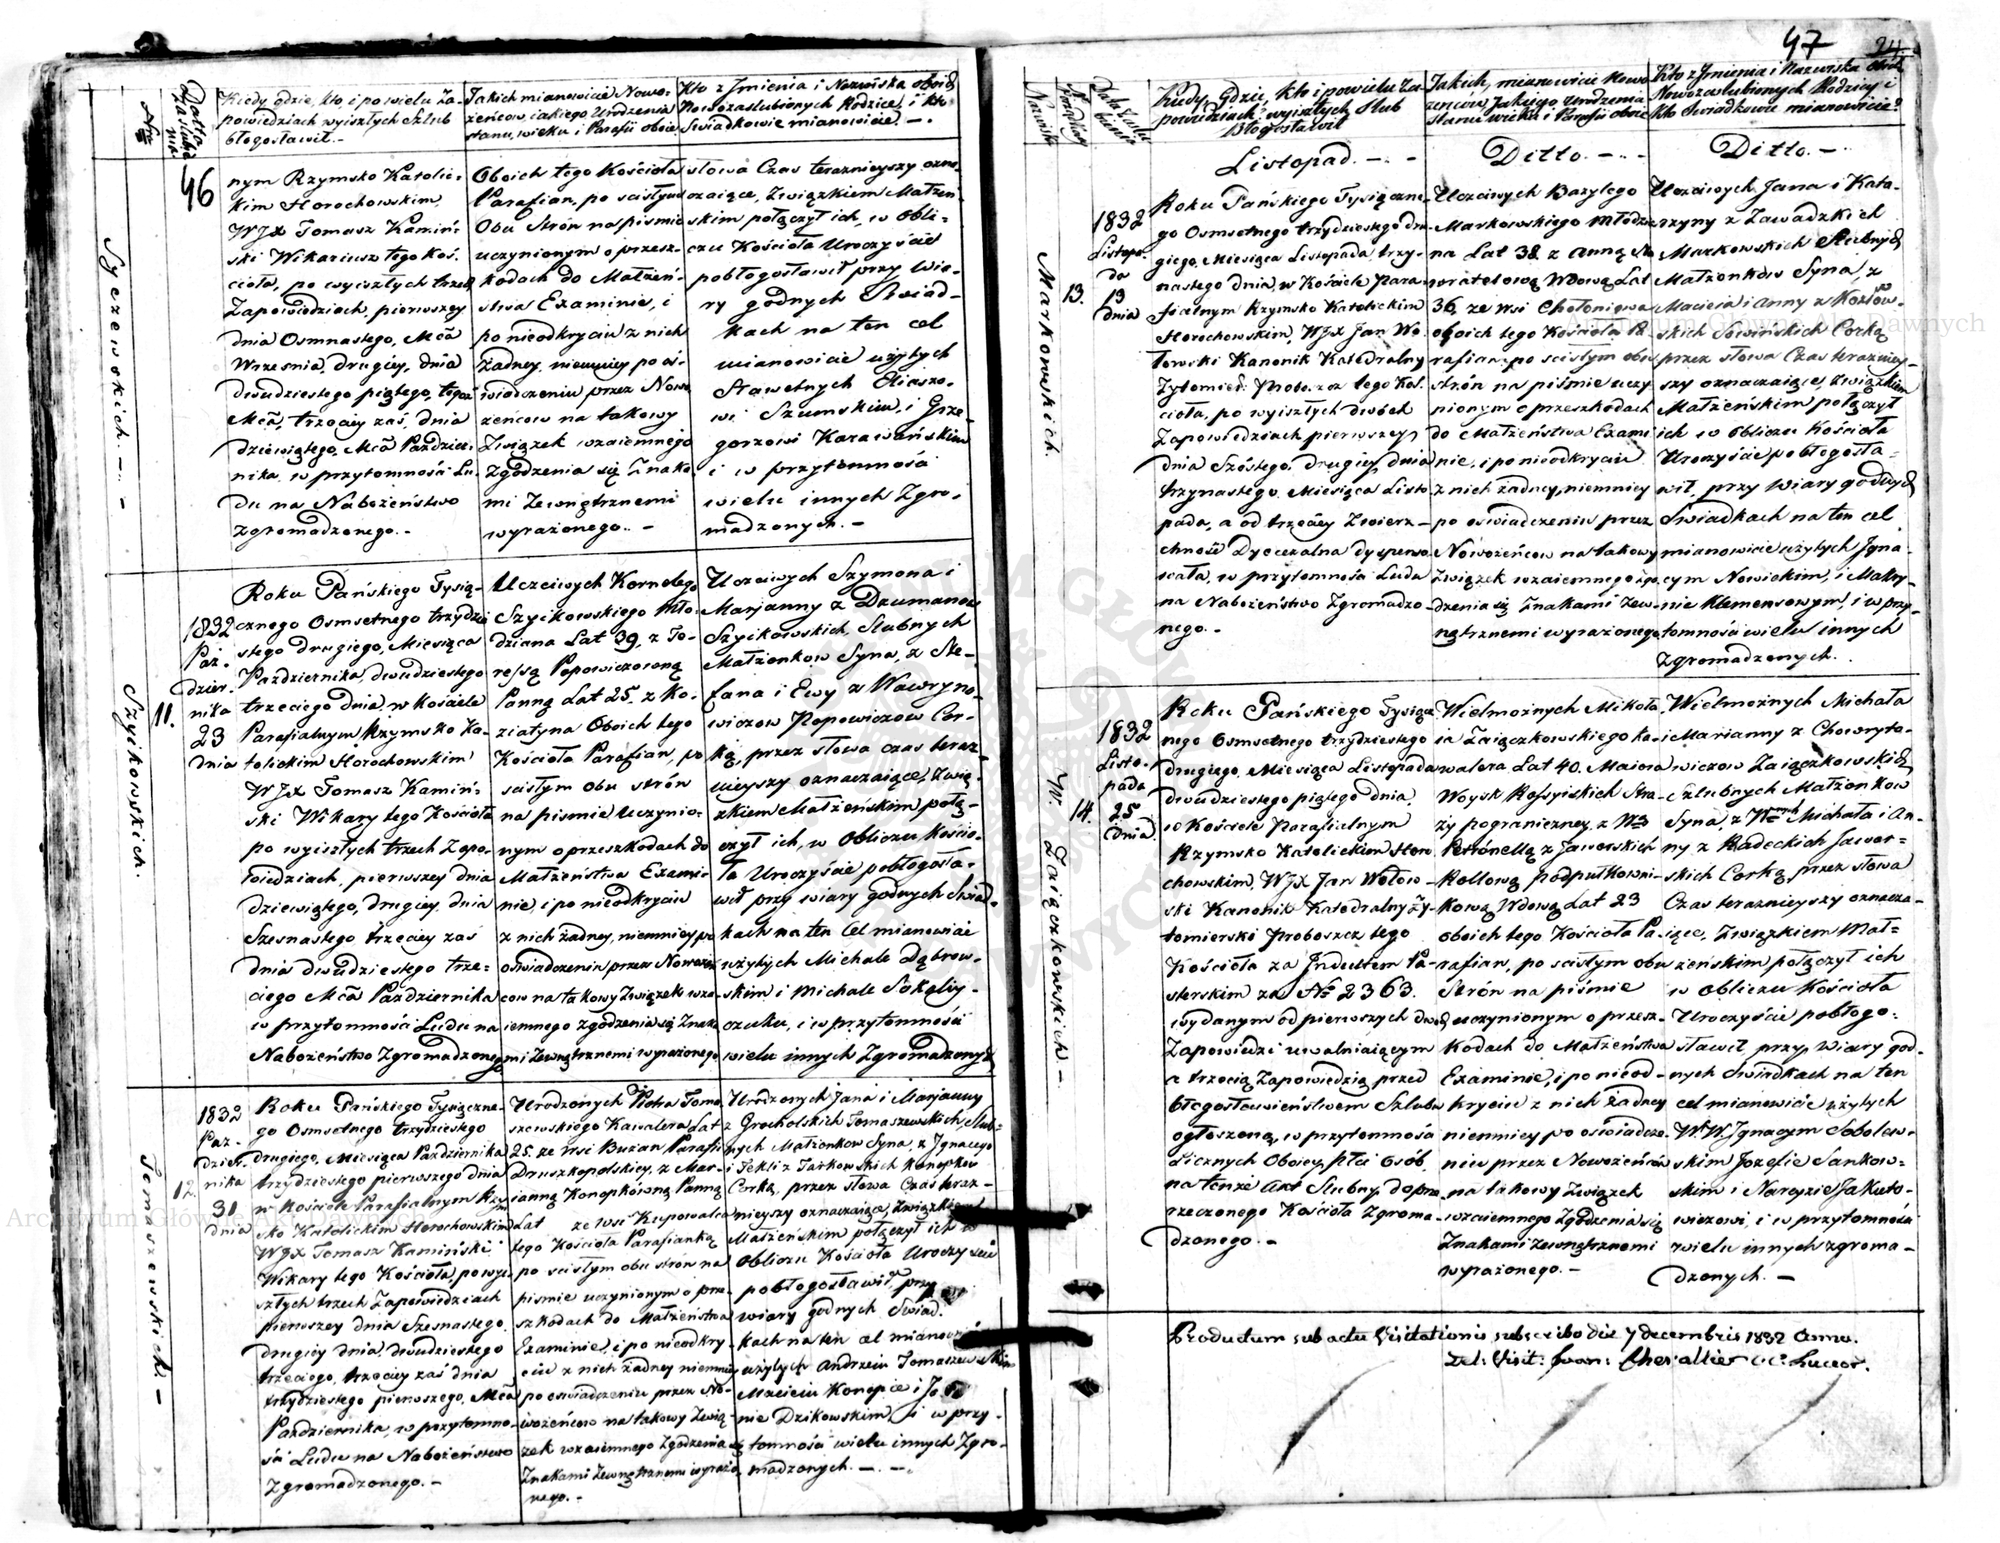 47 24.
Nro
Datta za szlubie nia
Kiedy gdzie, kto, i po wielu Za-
powiedziach wyiszłych szlub
błogosławił.-
Jakich mianowicie Nowo-
żeńcow, iakiego Urodzenia
stanu, wieku, i Parafii oboie.
Kto z Imienia i Nazwiska oboich
Nowozaslubionych Rodzice, i kto
Swiadkowie mianowicie. -.
46
Syczewskich. -.. -
nym Rzymsko Katolic:
kim Horochowskim,
WJX Tomasz Kamiń:
ski Wikariusz tego Koś.
cioła, po wyiszłych trzech
Zapowiedziach, pierwszey
dnia Osmnastego, Mcã
Wrzesnia, drugiey, dnia
dwudziestego piątego, tegoż
Mcã, trzeciey zaś, dnia
dziewiątego, Mcã Paździer.
nika, w przytomności Lu.
du na Nabożeństwo
zgromadzonego. -
Oboich tego Kościoła
Parafian, po scisłym
Obu Strón na pismie
uczynionym o przesz-
kodach do Małżeń-
stwa Examinie, i
po nieodkryciu z nich
żadney, niemniey po oś-
wiadczeniu przez Nowo
żeńcow na takowy
Związek wzaiemnego
Zgodzenia się Znaka
mi Zewnętrznemi
wyrażonego. -
słowa Czas teraznieyszy ozna.
czaiące, Związkiem Małżeń.
skim połączył ich, w obli-
czu Kościoła Uroczyście
pobłogosławił przy Wia-
ry godnych Swiad-
kach na ten cel
mianowicie użytych
Sławetnych Eliaszo.
wi Szumskim, i Grze-
gorzowi Karawańskim
i w przytomności
wielu innych Zgro-
madzonych. -
Szyikowskich.
11.
1832
Paź.
dzier.
nika
23
dnia
Roku Pańskiego Tysią-
cznego Osmsetnego trzydzie
stego drugiego, Miesiąca
Października, dwudziestego
trzeciego dnia, w Kościele
Parafialnym Rzymsko Ka-
tolickim Horochowskim
WJX Tomasz Kamiń:
ski Wikary tego Kościoła
po wyiszłych trzech Zapo-
wiedziach, pierwszey dnia
dziewiątego, drugiey, dnia
Szesnastego, trzeciey zaś
dnia dwudziestego trze-
ciego Mcã Października
w przytomności Ludu na
Nabożeństwo Zgromadzonego
Uczciwych Kornelego
Szyikowskiego Mło-
dziana Lat 39, z Te-
ressą Popowiczowną
Panną Lat 25. z Ko-
ziatyna Oboich tego
Kościoła Parafian, po
scisłym obu strón
na pismie Uczynio-
nym o przeszkodach do
Małżeństwa Exami-
nie, i po nieodkryciu
z nich żadney, niemniey po
oświadczeniu przez Nowożeń
cow na takowy Związek wza-
iemnego zgodzenia się Znaka
mi Zewnętrznemi wyrażonego
Uczciwych Szymona i
Marjanny z Dzumanow
Szyikowskich, Slubnych
Małżonkow Syna, z Ste-
fana i Ewy z Wawryno-
wiczow Popowiczow Cor-
ką, przez słowa czas teraz-
nieyszy oznaczaiące, Zwią-
zkiem Małżeńskim połą-
czył ich, w Obliczu Kościo-
ła Uroczyście pobłogosła-
wił przy wiary godnych Swiad-
kach na ten Cel mianowicie
użytych Michale Dąbrow-
skim i Michale Sokoliy-
czuku, i w przytomności
wielu innych Zgromadzonych
Tomaszewskich. -
12.
1832
Paź.
dzier.
nika
31
dnia
Roku Pańskiego Tysiączne-
go Osmsetnego trzydziestego
drugiego, Miesiąca Października
trzydziestego pierwszego dnia
w Kościele Parafialnym Rzym
sko Katolickim Horochowskim
WJX Tomasz Kamiński
Wikary tego Kościoła, po wyi-
szłych trzech Zapowiedziach
pierwszey dnia Szesnastego,
drugiey dnia, dwudziestego
trzeciego, trzeciey zaś dnia
trzydziestego pierwszego, Mcã
Października, w przytomno-
ści Ludu na Nabożeństwo
Zgromadzonego. -
Urodzonych Piotra Toma
szewskiego Kawalera Lat
25. ze wsi Buzan Parafii
Druszkopolskiey, z Mar-
ianną Konopkówną Panną
Lat ze wsi Krupowalca
tego Kościoła Parafianką
po scisłym obu strón na
pismie uczynionym o prze
szkodach do Małżeństwa
Examinie, i po nieodkry-
ciu z nich żadney niemniey
po oświadczeniu przez No-
wożeńcow na takowy Zwią-
zek wzaiemnego Zgodzenia się
Znakami Zewnętrznemi wyrażo
nego. -
Urodzonych Jana i Marjanny
z Grocholskich Tomaszewskich, Slub-
nych Małżonkow Syna, z Jgnacego
i Tekli z Tarkowskich Konopkow
Corką, przez słowa Czas teraz-
nieyszy oznaczaiące, Związkiem
Małżeńskim połączył ich w
Obliczu Kościoła Uroczyscie
pobłogosławił, przy
wiary godnych Swiad.
kach na ten cel mianowicie
użytych Andrzeiu Tomaszewskim
Macieiu Konopce i
nie Dzikowskim, i w przy-
tomności wielu innych Zgro-
madzonych. - . - .
Nazwisko
Liczba
Kiedy, Gdzie, kto i po wielu Za-
powiedziach, wyiszłych Slub
Błogosławił
Jakich, mianowicie Nowo
żencow, Jakiego Urodzenia
Stanu wieku i Parafii oboie
Kto z Imienia i Nazwiska oboich
Nowozaslubionych Rodzicy i
Kto Swiadkowie mianowicie?
Listopad. - . -
Ditto. - .. -
Ditto. - .
Markowskich.
13.
1832
Listopa
da
13
dnia
Roku Pańskiego Tysiączne-
go Osmsetnego trzydziestego dru
giego, Miesiąca Listopada, trzy-
nastego dnia, w Kościele Para-
fialnym Rzymsko Katolickim
Horochowskim, WJX Jan Wo
łowski Kanonik Katedralny
Żytomier: Probo.zcz tego Koś.
cioła, po wyiszłych dwóch
Zapowiedziach pierwszey
dnia Szóstego, drugiey dnia
trzynastego, Miesiąca Listo
pada, a od trzeciey Zwierz-
chność Dyecezalna dyspenso
wała, w przytomności Ludu
na Nabożeństwo Zgromadzo-
nego. -
Uczciwych Bazylego
Markowskiego Młodzia
na Lat 38. z Anną No
wratelową Wdową Lat
36, ze wsi Chołoniowa
oboich tego Kościoła Pa-
rafian, po scisłym obu
strón na piśmie uczy
nionym o przeszkodach
do Małżeństwa Exami
nie, i po nieodkryciu
z nich żadney, niemniey
po oswiadczeniu przez
Nowożeńcow na takowy
Związek wzaiemnego zgo.
dzenia się Znakami Zew-
nętrznemi wyrażonego
Uczciwych Jana i Kata-
rzyny z Zawadzkich
Markowskich Slubnych
Małżonków Syna, z
Macieia i Anny z Kozłow-
skich Sowińskich Corką
przez słowa Czas terazniey-
szy oznaczaiące, Związkiem
Małżeńskim połączył
ich w obliczu Kościoła
Uroczyście pobłogosła-
wił, przy Wiary godnych
Swiadkach na ten cel
mianowicie użytych Jgna-
cym Nowickim, i Makry-
nie Klemensowym, i w przy-
tomności wielu innych
Zgromadzonych.
W. Zaiączkowskich. -
14.
1832
Listo-
pada
25
dnia.
Roku Pańskiego Tysiącz
nego Osmsetnego trzydziestego
drugiego, Miesiąca Listopada
dwudziestego piątego dnia,
w Kościele Parafialnym
Rzymsko Katolickim Horo
chowskim, WJX Jan Wołow-
ski Kanonik Katedralny Ży-
tomierski Proboszcz tego
Kościoła za Jndultem Pa-
sterskim za No 2363.
wydanym od pierwszych dwóch
Zapowiedzi uwalniaiącym
a trzecią Zapowiedzią przed
błogosławieństwem Szlubu
ogłoszoną, w przytomności
Licznych Oboiey, płci Osób,
na tenże Akt Slubny, do prze
rzeczonego Kościoła Zgroma-
dzonego. -
Wielmożnych Mikoła
ia Zaiączkowskiego Ka-
walera Lat 40. Maiora
Woysk Rossyiskich Stra-
ży pograniczney, z W
Petronellą z Jaworskich
Rollową podpułkowni-
kową Wdową Lat 23
oboich tego Kościoła Pa-
rafian, po scisłym obu
Strón na piśmie
uczynionym o przesz-
kodach do Małżeństwa
Examinie, i po nieod-
kryciu z nich żadney
niemniey po oświadcze-
niu przez Nowożeńców
na takowy Związek
wzaiemnego Zgodzenia się
Znakami Zewnętrznemi
wyrażonego. -
Wielmożnych Michała
i Marianny z Chowryto-
wiczow Zaiączkowskich
Szlubnych Małżonkow
Syna, z Michała i An-
ny z Radeckich Jawor-
skich Corką, przez słowa
Czas teraznieyszy oznacza-
iące, Związkiem Mał-
żeńskim połączył ich
w obliczu Kościoła
Uroczyście pobłogo-
sławił przy, Wiary god-
nych Swiadkach na ten
cel mianowicie użytych
WW Jgnacym Sobolew-
skim Jozefie Sankow-
skim i Narcyzie Jakuto-
wiczowi, i w przytomności
wielu innych zgroma-
dzonych. -
Productum sub actu Visitationis subscribo die 7 decembris 1832 Anno.
Del: Visit: Joan: Chevallier C. Luceor.
Archiwum Główne Akt Dawnych
Archiwum Główne Akt Dawnych